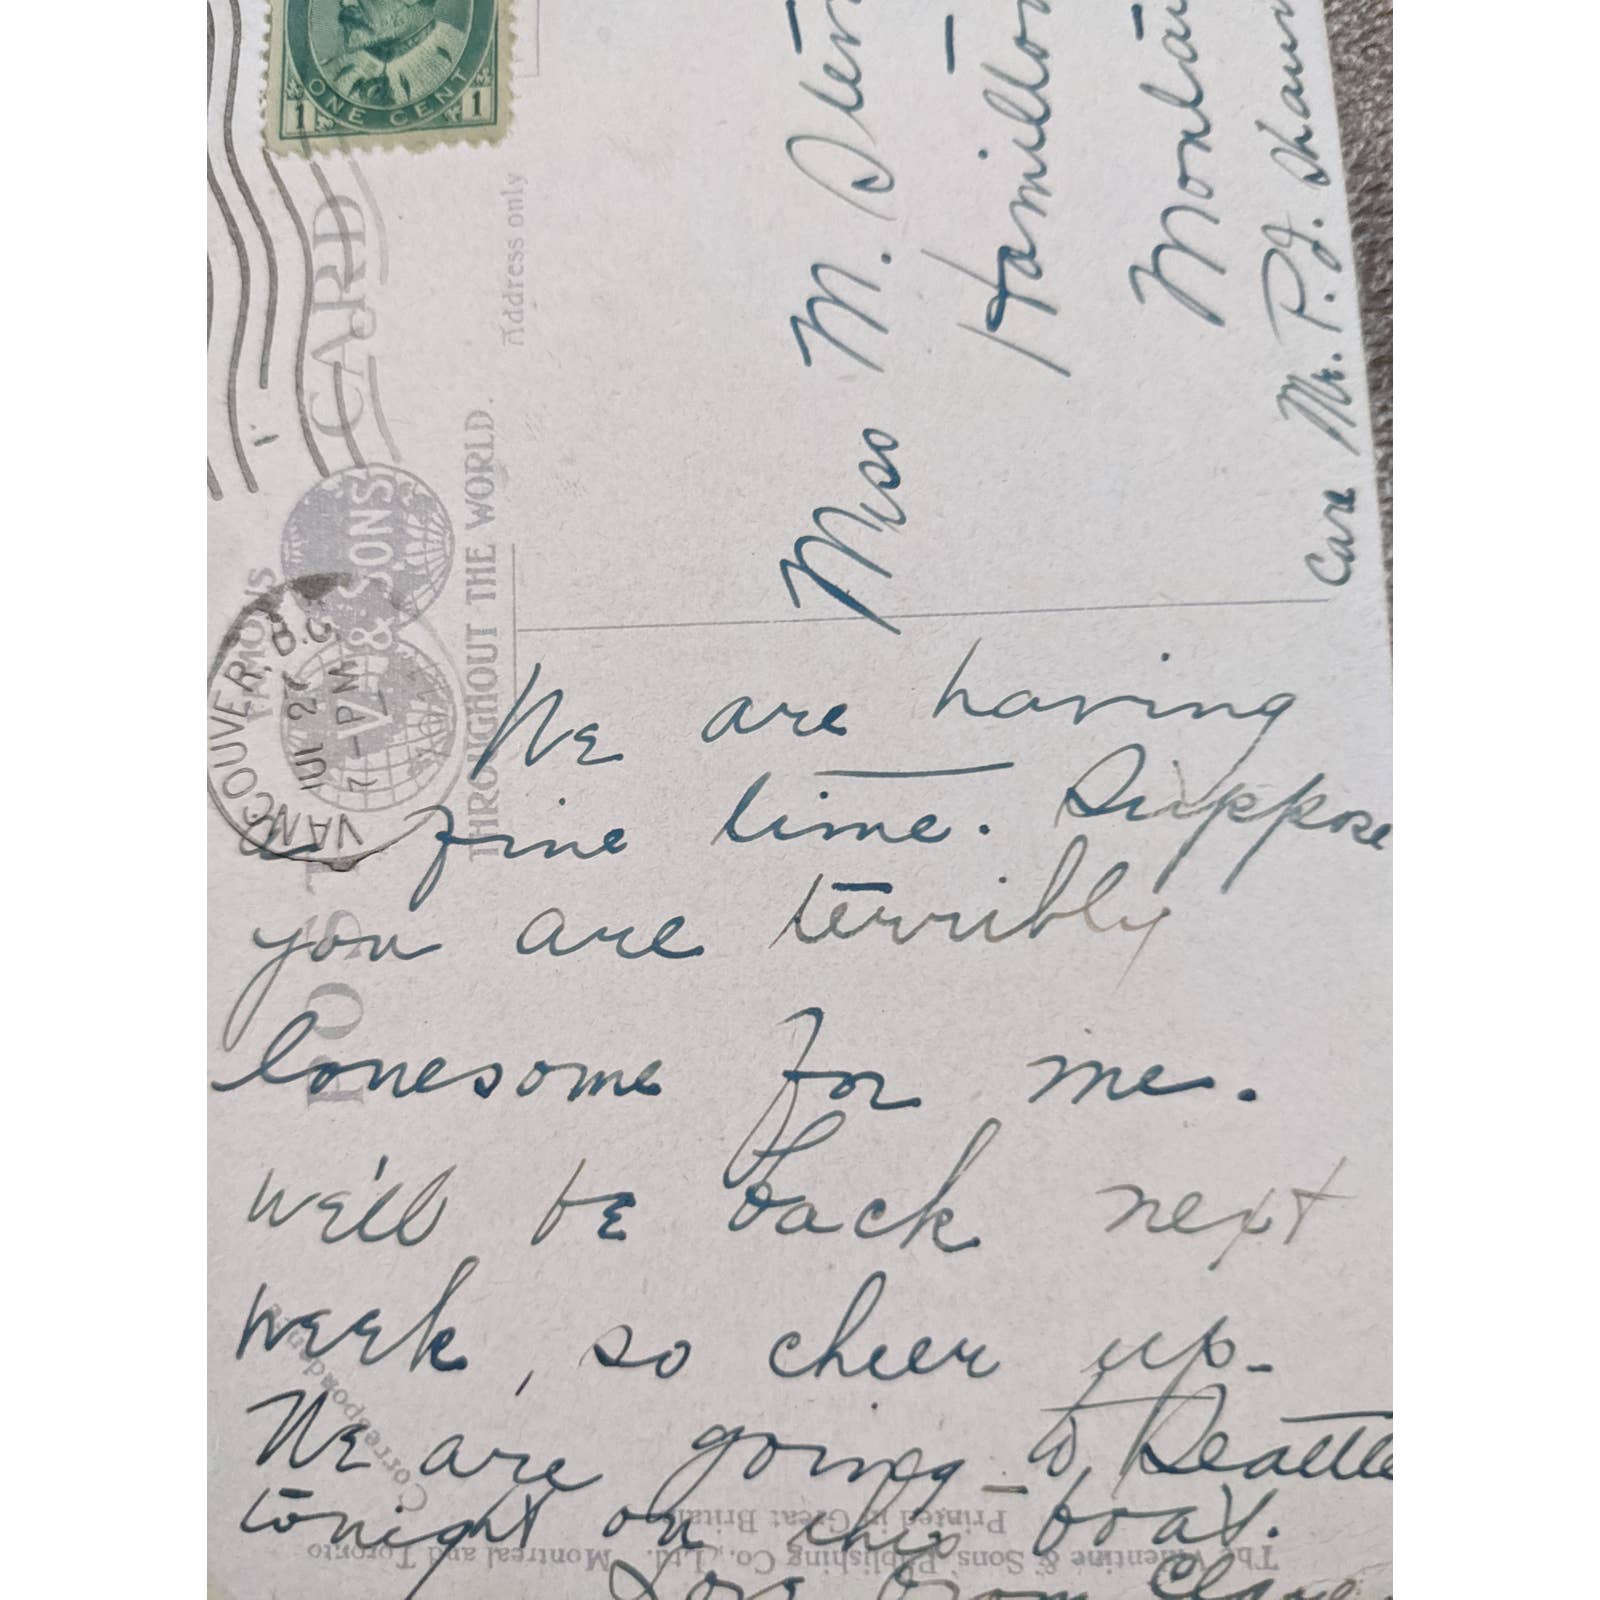 ONE CENT
1 1
POST CARD
VANCOUVER, B.C.
JUL 2
7 - PM
FAMOUS
& SONS
THROUGHOUT THE WORLD.
Address only
Miss M. Sten
Hamilton
Montan
Care Mr. P.J. Shann
We are having
a fine time. Suppose
you are terribly
lonesome for me.
We'll be back next
week, so cheer up-
We are going to Seattle
tonight on this boat.
Love from
Correspondence
Printed in Great Britain
The Valentine & Sons' Publishing Co., Ltd. Montreal and Toronto